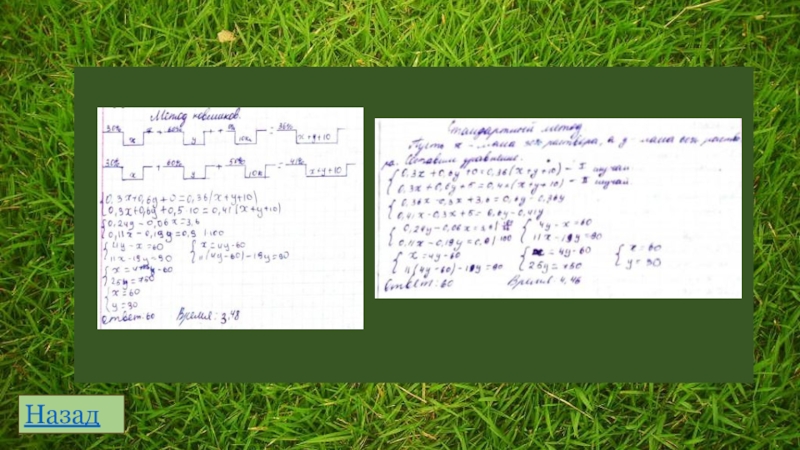 Метод ковшиков.
30% 60% 0% 36%
x + y + 10кг = x+y+10
30% 60% 50% 41%
x + y + 10кг = x+y+10
0,3x+0,6y+0=0,36(x+y+10)
0,3x+0,6y+0,5·10=0,41(x+y+10)
0,24y-0,06x=3,6
0,11x-0,19y=0,9 |·100
4y-x=60
11x-19y=90
x=4y-60
11(4y-60)-19y=90
x=4y-60
25y=750
x=60
y=30
Ответ: 60 Время: 3,48
Стандартный метод
Пусть x - масса 30% раствора, а y - масса 60% раство
ра. Составим уравнение.
0,3x+0,6y+0=0,36(x+y+10) - I случай
0,3x+0,6y+5=0,41(x+y+10) - II случай
0,36x-0,3x+3,6=0,6y-0,36y
0,41x-0,3x+5=0,6y-0,41y
4y-x=60
11x-19y=90
x=4y-60
11(4y-60)-19y=90
x=4y-60
25y=750
x=60
y=30
Ответ: 60 Время: 4,46
Назад